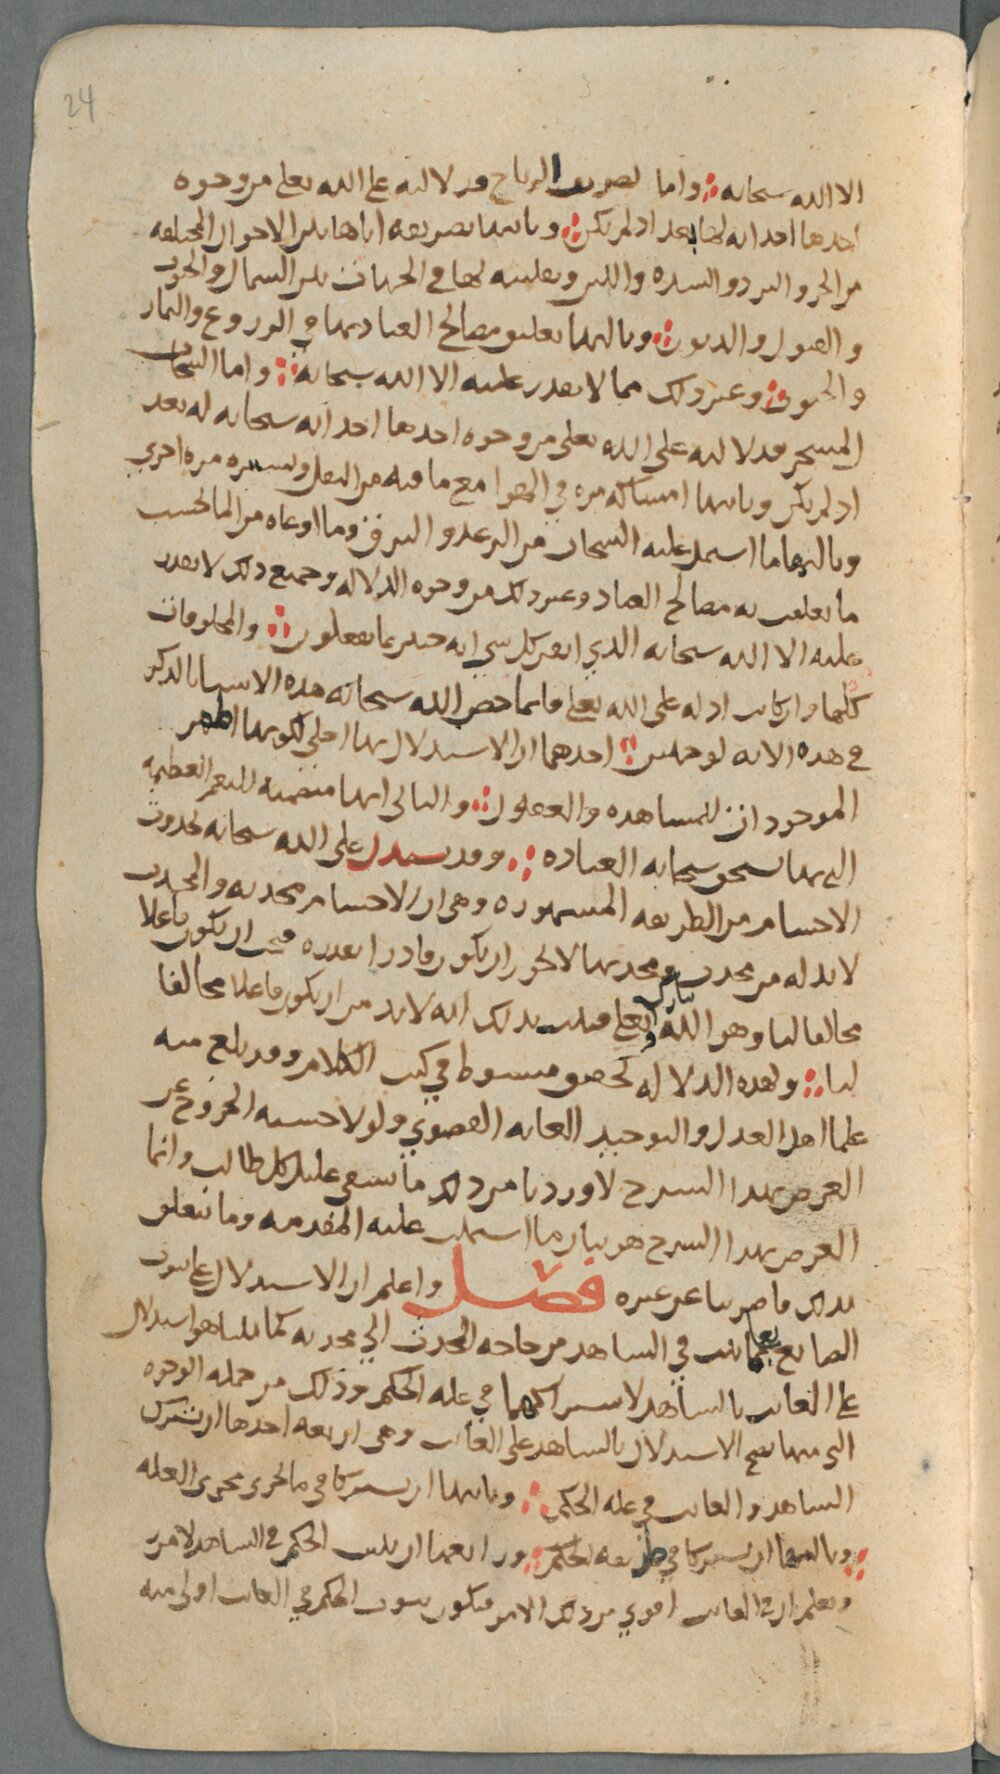 24
الا الله سبحانه ؞ واما تصريف الرياح فدلالته على الله تعالى من وجوه
احدها احداثه لها بعد ان لم تكن ؞ وثانيها تصريفه اياها بين الاحوال المختلفه
من الحر والبرد والشده واللين وتقليبه لها في الجهات بين الشمال والجنوب
والقبول والدبور ؞ وثالثها تعليق مصالح العباد بها في الزروع والثمار
والحبوب ؞ وغير ذلك مما لا يقدر عليه الا الله سبحانه ؞ واما السحاب
المسخر فدلالته على الله تعالى من وجوه احدها احداثه سبحانه له بعد
ان لم يكن وثانيها امساكه مره في الهوا مع ما فيه من الثقل وتسييره مره اخرى
وثالثها ما اشتمل عليه السحاب من الرعد والبرق وما اوعاه من الما بحسب
ما تعلقت به مصالح العباد وغير ذلك من وجوه الدلاله وجميع ذلك لا يقدر
عليه الا الله سبحانه الذي اتقن كل شي انه خبير بما يفعلون ؞ والمخلوقات
كلها وان كانت ادله على الله تعالى فانما خص الله سبحانه هذه الاشيا بالذكر
في هذه الايه لوجهين ؞ احدهما ان الاستدلال بها اجلى لكونها اظهر
الموجودات للمشاهده والعقول ؞ والثاني انها متضمنه للنعم العظيمه
التي بها يستحق سبحانه العباده ؞ وقد يستدل على الله سبحانه بحدوث
الاجسام من الطريقه المشهوره وهي ان الاجسام محدثه والمحدث
لا بد له من محدث ومحدثها لا يجوز ان يكون قادرا بقدره فيجب ان يكون فاعلا
مخالفا لنا وهو الله تبارك وتعالى فثبت بذلك انه لا بد من ان يكون فاعلا مخالفا
لنا ؞ ولهذه الدلاله تحقيق مبسوط في كتب الكلام وقد بلغ فيه
علما اهل العدل والتوحيد الغايه القصوى ولولا خشيه الخروج عن
الغرض بهذا الشرح لاوردنا من ذلك ما يشفي غليل كل طالب وانما
الغرض بهذا الشرح هو بيان ما اشتملت عليه المقدمه وما يتعلق
بذلك فاضربنا عن غيره فصل واعلم ان الاستدلال على ثبوت
الصانع تعالى بما ثبت في الشاهد من حاجه المحدث الى محدثه كما بيناه هو استدلال
على الغائب بالشاهد لاشتراكهما في عله الحكم وذلك من جمله الوجوه
التي منها يصح الاستدلال بالشاهد على الغائب وهي اربعه احدها ان يشترك
الشاهد والغائب في عله الحكم ؞ وثانيها ان يشتركا في ما يجري مجرى العله
؞ وثالثها ان يشتركا في طريقه الحكم ؞ ورابعها ان يثبت الحكم في الشاهد لامر
ويعلم ان في الغائب اقوى من ذلك الامر فيكون ثبوت الحكم في الغائب اولى منه